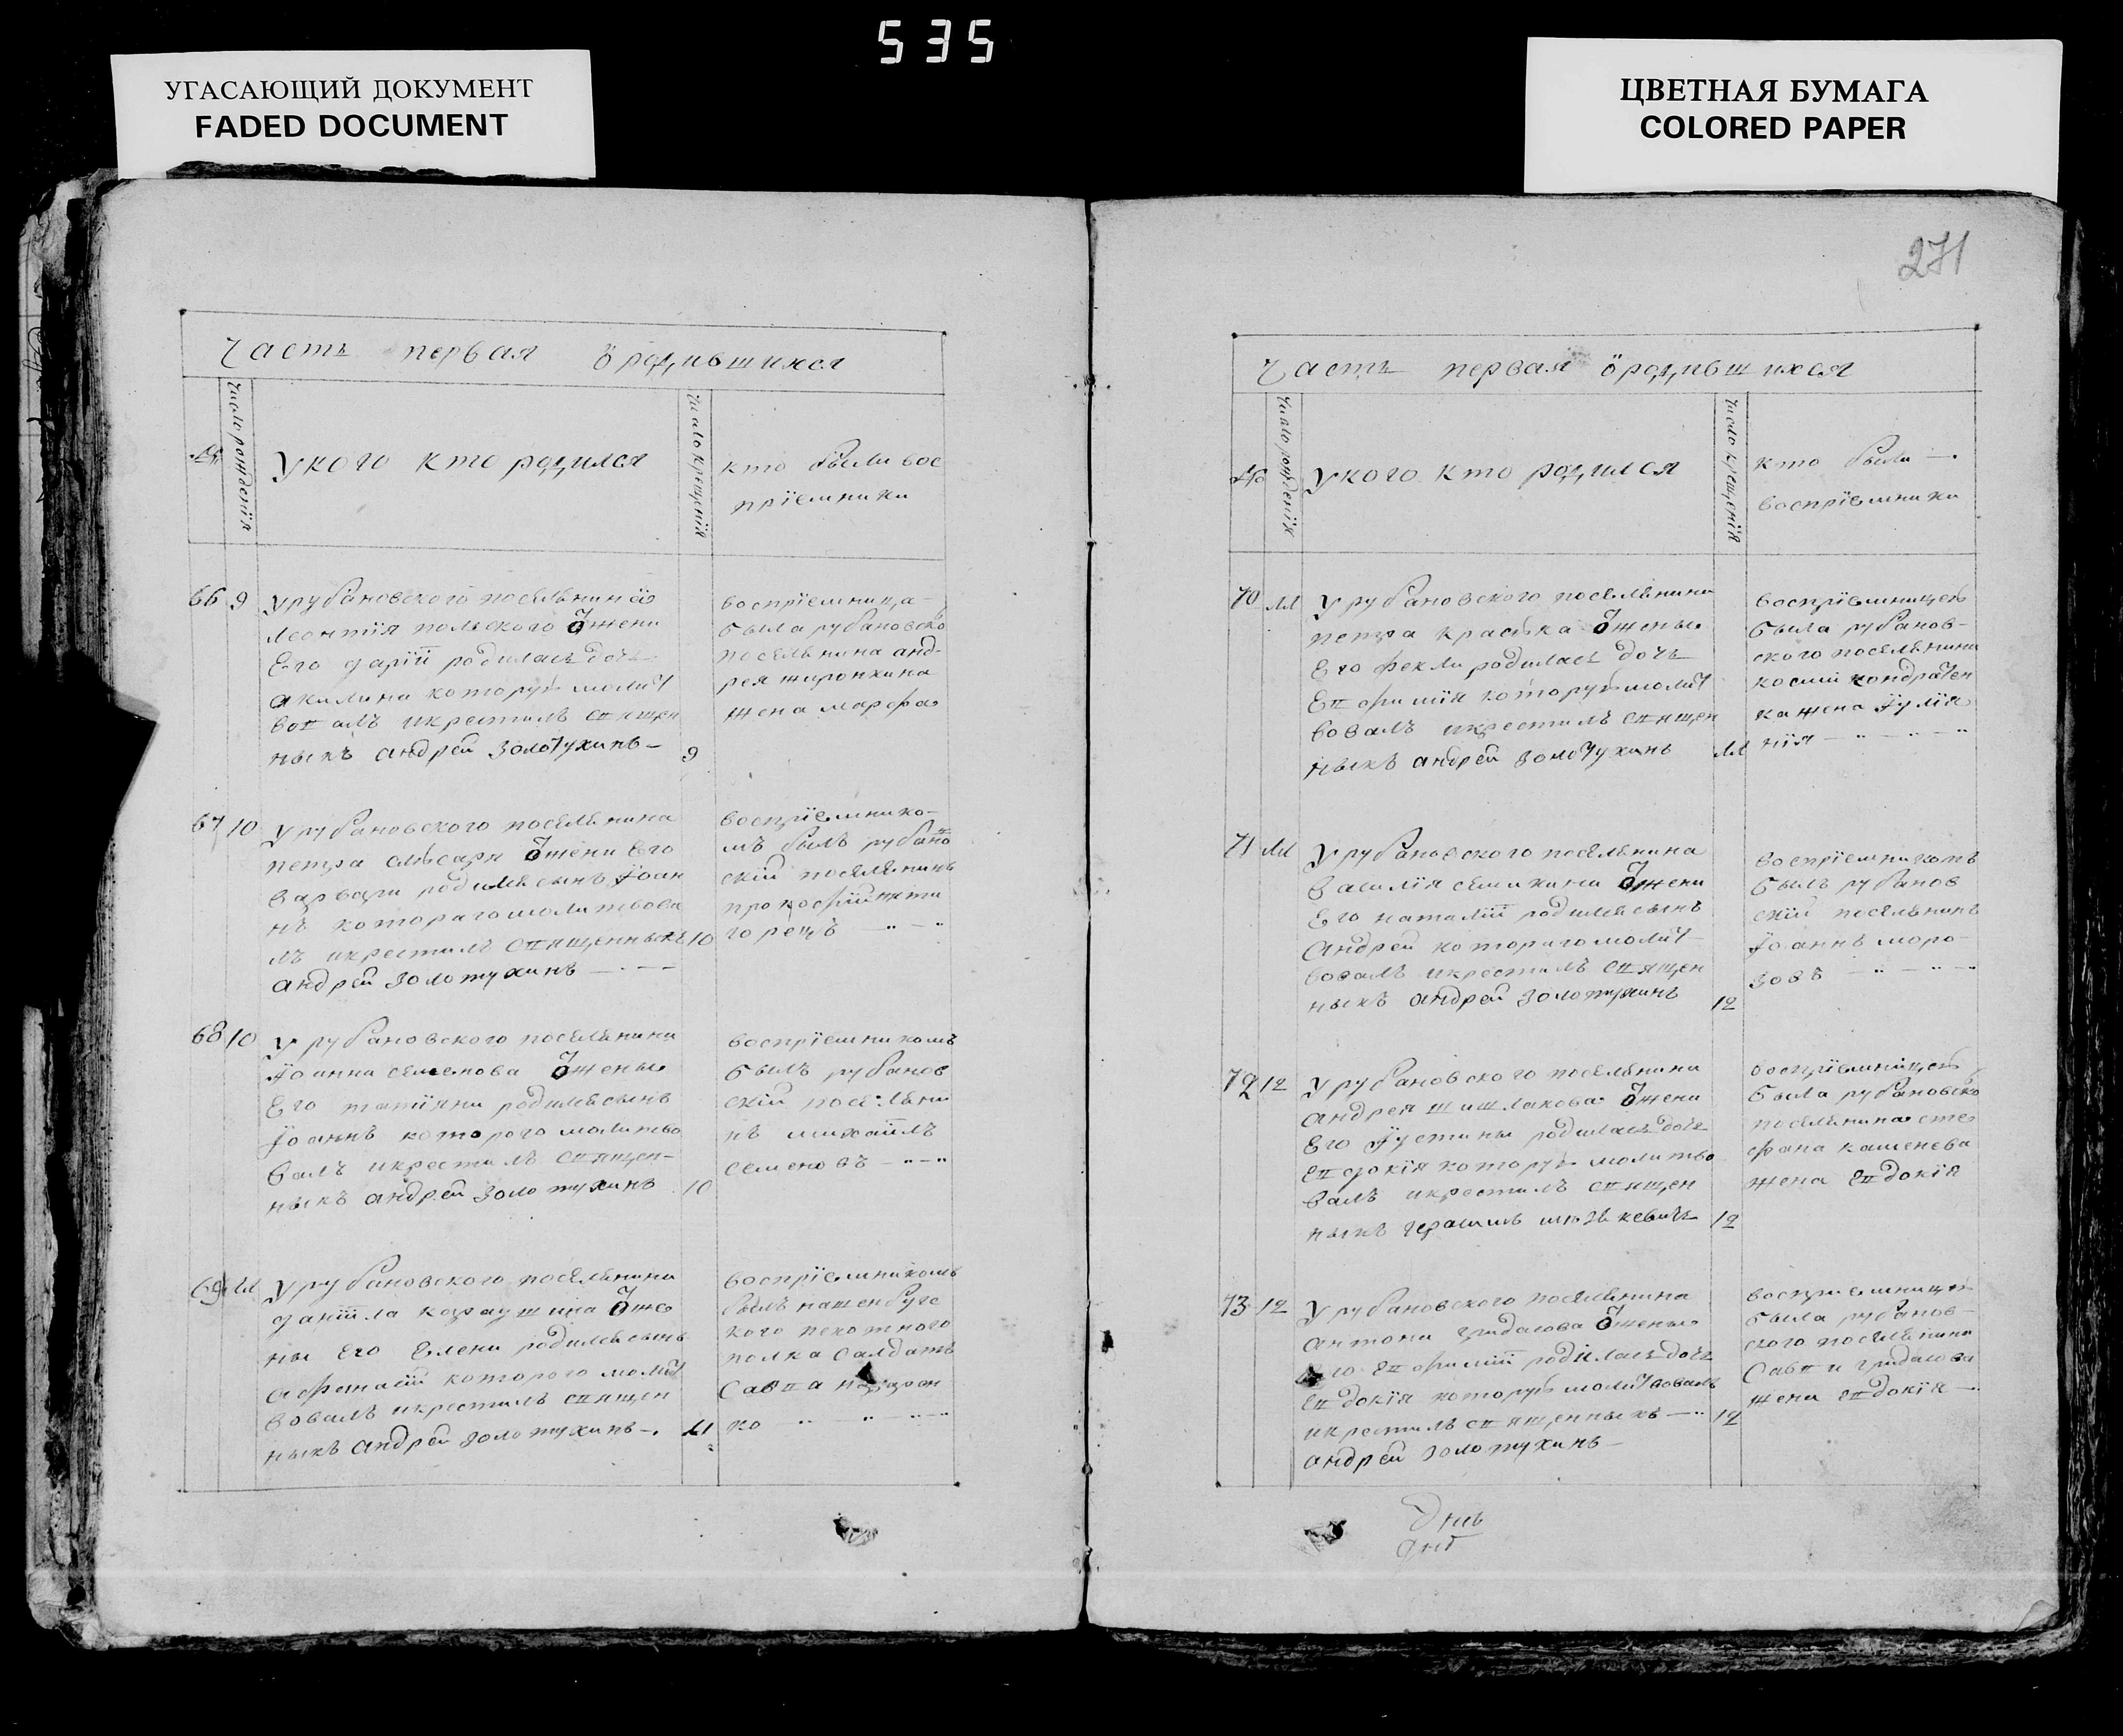 535
УГАСАЮЩИЙ ДОКУМЕНТ
FADED DOCUMENT
ЦВЕТНАЯ БУМАГА
COLORED PAPER
Часть первая ѿ родившихся
№
Число рожденїя
У кого кто родился
Число крещенїя
кто были вос
прїемники
66 9
У рубановского поселянина
Леонтїя польского ѿ жени
Его дарїи родилась дочь
акилина которую молит
вовалъ и крестилъ священ
никъ андрей золотухинъ –
9
воспрїемница –
была рубановско
поселянина анд-
рея
жена марфа
67 10
У рубановского поселянина
петра слѣсаря ѿ жени Его
варвари родился сынъ Іоан
нъ котораго молитвова
лъ и крестилъ священникъ
андрей золотухинъ
10
воспрїемнико-
мъ былъ рубано
скїй поселянинъ
прокофїй
68 10
У рубановского поселянина
Іоанна семенова ѿ жены
Его татїяни родился сынъ
Іоаннъ которого молитво
валъ и крестилъ священ-
никъ андрей золотухинъ
10
воспрїемникомъ
былъ рубанов
скїй поселяни
нъ михаилъ
семеновъ
69 11
У рубановского поселянина
данїила караушина ѿ же
ны его Елени родился сынъ
афанасїй которого молит
вовалъ и крестилъ священ
никъ андрей золотухинъ –
11
воспрїемникомъ
былъ
кого пехотного
полка салдатъ
Савва
ко
271
Часть первая ѿ родившихся
№
Число рожденїя
У кого кто родился
Число крещенїя
кто были –
воспрїемники
70 11
У рубановского поселянина
петра краська ѿ жены
Его феклы родилась дочь
Евфимїя которую молит
вовалъ и крестилъ священ
никъ андрей золотухинъ
11
воспрїемницею
была рубанов-
ского поселянина
косми кондратен
ка жена Іулїя
нїя
71 11
У рубановского поселянина
василїя семикини ѿ жени
Его наталїи родился сынъ
Андрей которого молит-
вовалъ и крестилъ священ
никъ андрей золотухинъ
12
воспрїемникомъ
былъ рубанов
скїй поселянинъ
Іоаннъ моро-
зовъ
72 12
У рубановского поселянина
андрея шишлакова ѿ жени
Его Іустины родилась дочь
Евдокїя которую молитво
валъ и крестилъ священ
никъ герасимъ
12
воспрїемницею
была рубановско
поселянина сте
фана каменева
жена Евдокїя
73 12
У рубановского поселянина
антона гридасова ѿ жены
Его Евфимїи родилась дочь
Евдокїя которую молитвовалъ
и крестилъ священникъ –
андрей золотухинъ –
12
воспрїемницею
была рубанов-
ского поселянина
Саввы гридасова
жена Евдокїя –